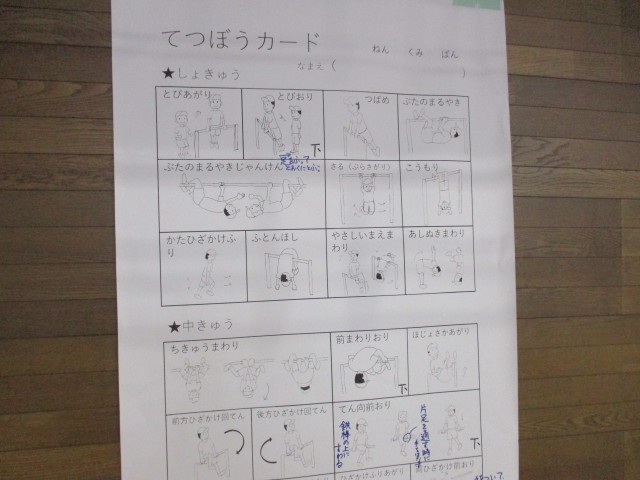 てつぼうカード
ねん くみ ばん
なまえ( )
★しょきゅう
とびあがり
とびおり
下
つばめ
ぶたのまるやき
ぶたのまるやきじゃんけん
さる(ぶらさがり)
こうもり
かたひざかけふ
り
ふとんほし
やさしいまえま
わり
あしぬきまわり
★中きゅう
ちきゅうまわり
前まわりおり
下
ほじょさかあがり
前方ひざかけ回てん
後方ひざかけ回てん
てん向前おり
鉄棒の上に
すわる
片足を通す時に
下